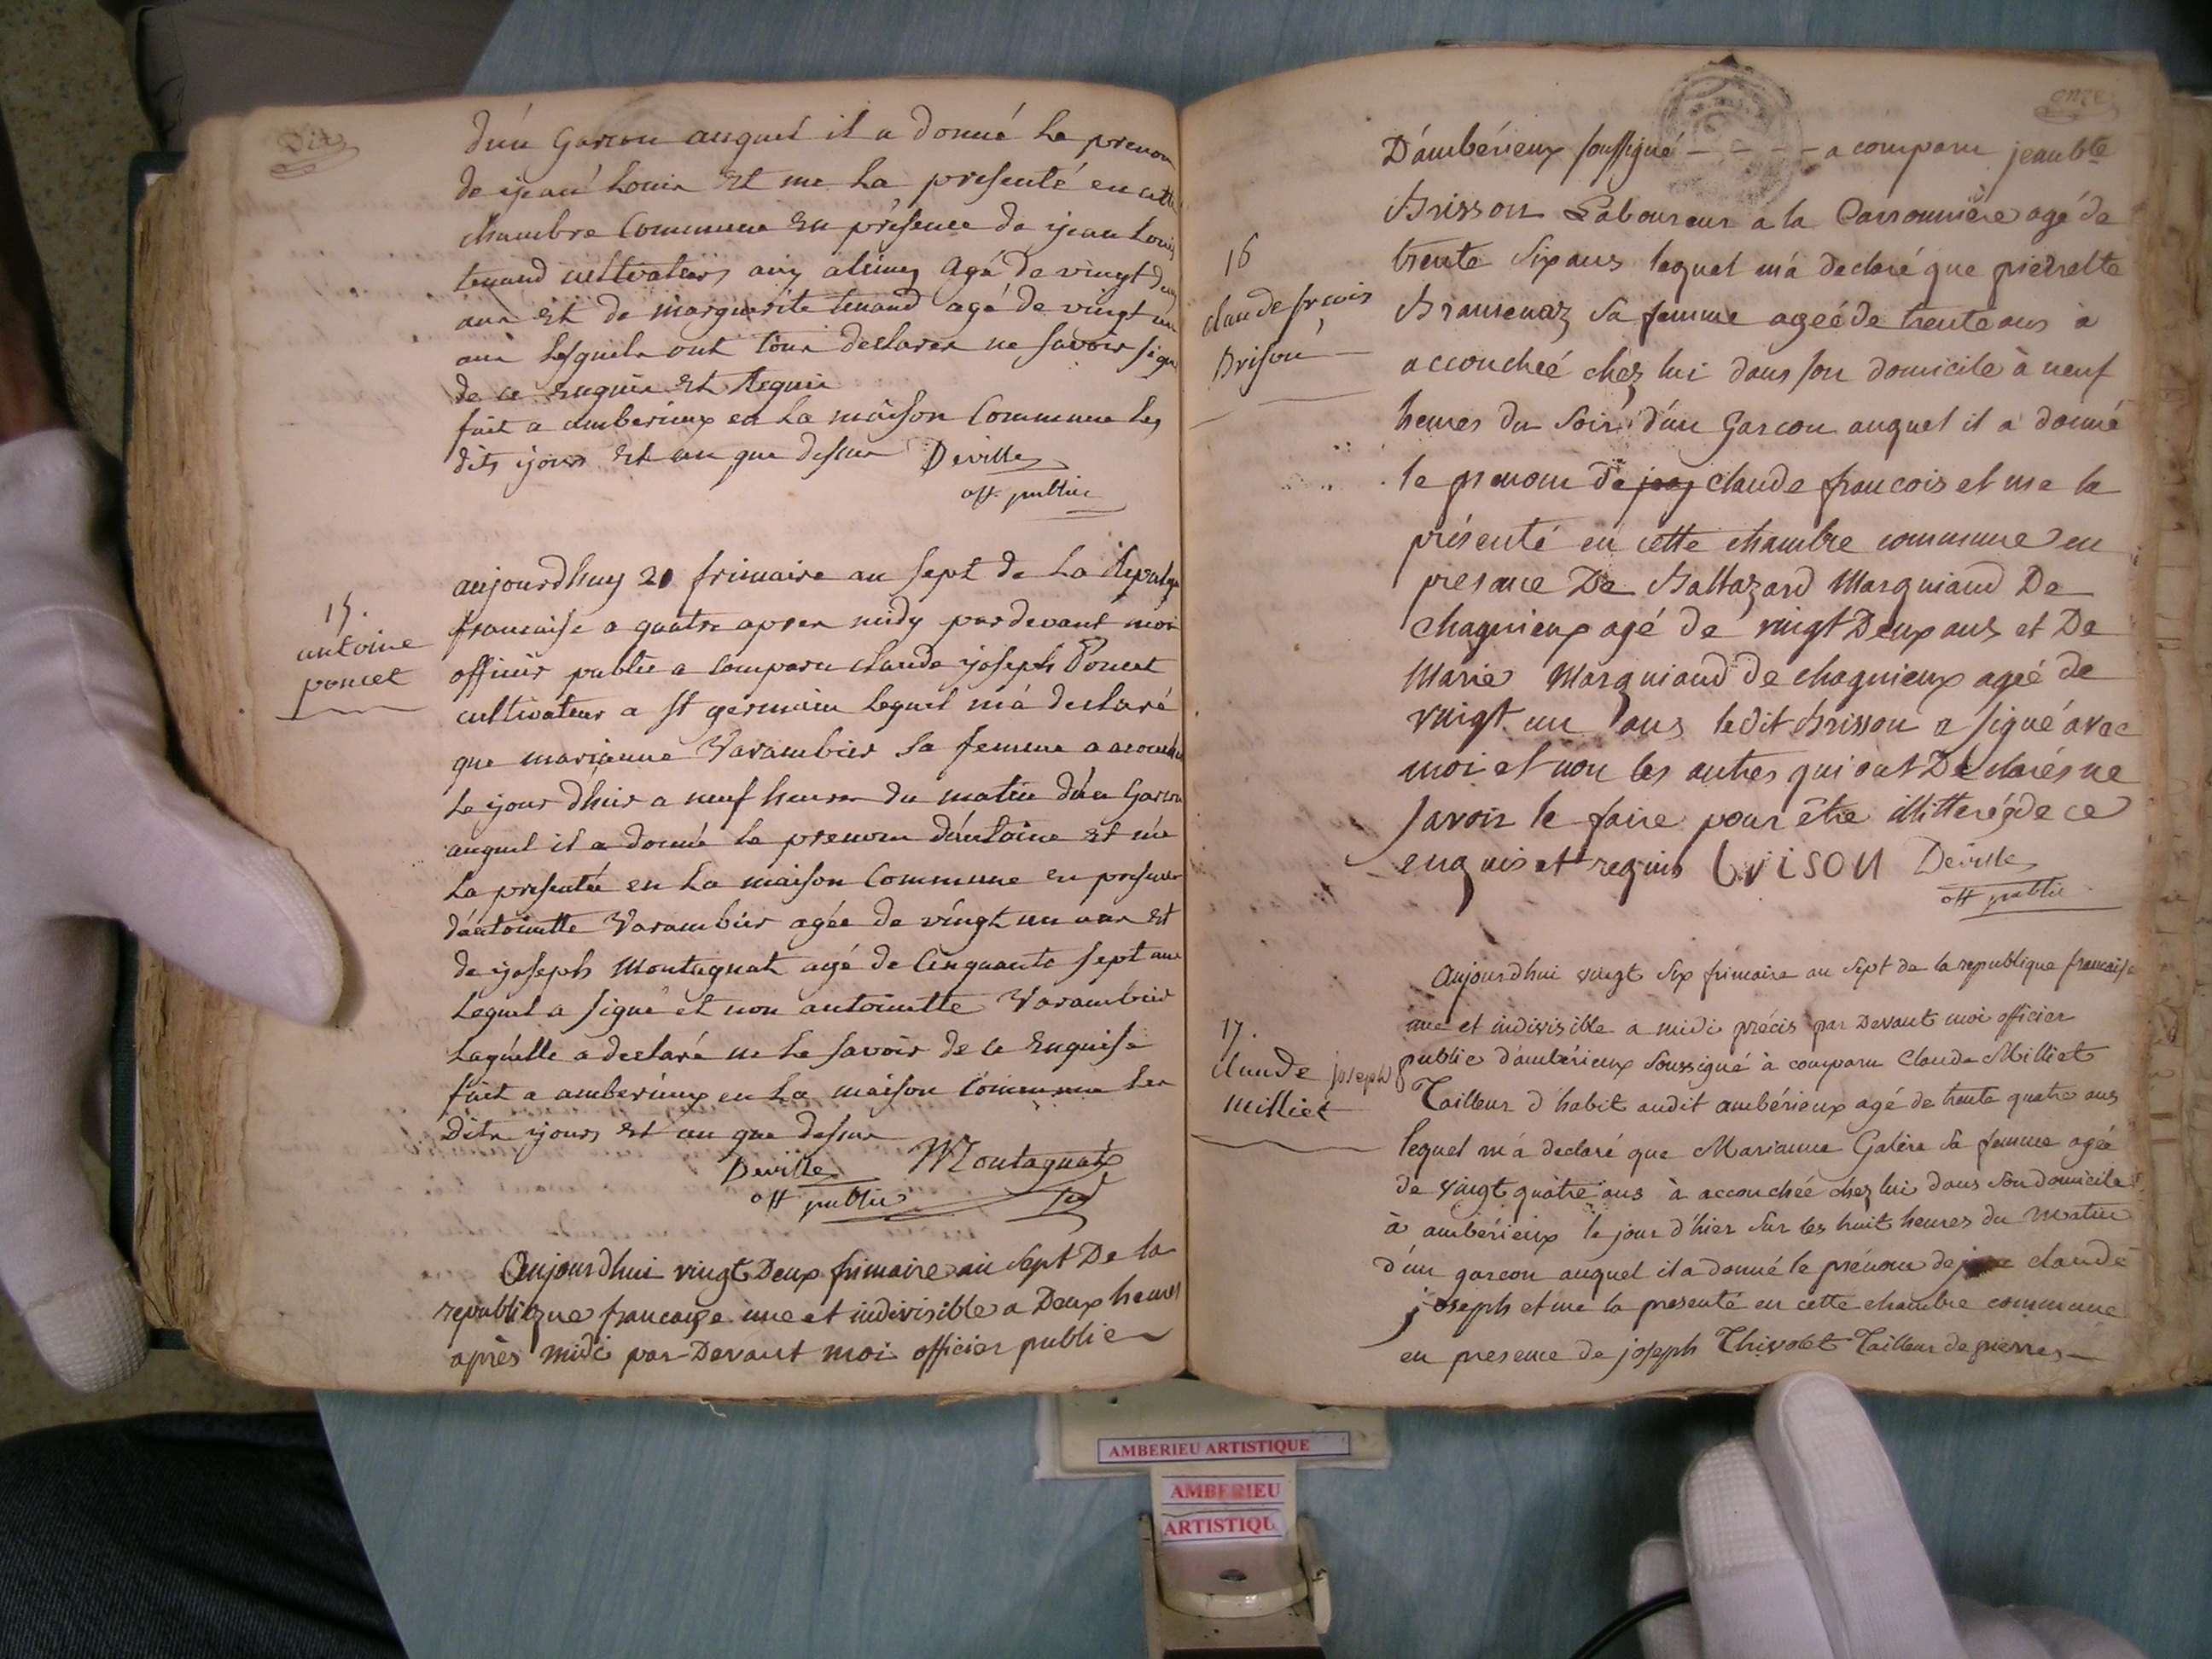 Dix
d'un Garcon auquel il a donné le prenom
de jean Louis Et me La presenté en cette
chambre Commune En présence de jean Louis
tenand cultivateur aux alimes Agé de vingt deux
ans Et de marguerite tenand agé de vingt un
ans Lesquels ont tous declarer ne savoir signer
de ce Enquis Et Requis
fait a amberieux en La maison Commune les
dits jours Et an que dessus Deville
off public
15.
antoine
poncet
aujourdhuy 21 frimaire an sept de La Republique
francaise a quatre apres midy pardevant moi
officier public a comparu claude joseph Poncet
cultivateur a st germain Lequel m'a declaré
que marianne Varambier sa femme a accouché
Le jour dhier a neuf heures du matin d'un Garcon
auquel il a donné le prenom d'antoine Et me
La presentée en La maison Commune en presence
d'antoinette Varambier agée de vingt un ans Et
de joseph Montagnat agé de Cinquante sept ans
Lequel a signé et non antoinette Varambier
Laquelle a declaré ne Le savoir de ce Enquise
fait a amberieux en La maison Commune Les
Dits jours Et an que dessus
Deville Montagnat
off public
Aujourdhui vingt Deux frimaire an sept De la
republique francaise une et indivisible a Deux heures
après midi par-Devant moi officier public
onze
D'ambérieux soussigné - - - - a comparu jean bte
Brisson Laboureur a la Carronnière agé de
trente six ans lequel m'a declaré que pierrette
Bramenaz sa femme agéé de trente ans a
accouchéé chez lui dans son domicile à neuf
heures du soir d'un Garcon auquel il a donné
le prenom de jean claude francois et me la
présenté en cette chambre commune en
presance De Baltazard Marguiand De
chagnieux agé de vingt Deux ans et De
Marie Marguiand de chagnieux ageé de
vingt un ans ledit brisson a signé avec
moi et non les autres qui ont Déclarés ne
savoir le faire pour être illitterés de ce
enquis et requis brison Deville
off public
16
claude frcois
Brison
Aujourdhui vingt six frimaire an sept de la republique francaise
une et indivisible a midi précis par Devant moi officier
public d'ambérieux soussigné à comparu Claude Milliet
Tailleur d'habit audit ambérieux agé de trente quatre ans
lequel m'a declaré que Marianne Galère sa femme agée
de vingt quatre ans à accouchée chez lui dans son domicile
à ambérieux le jour d'hier sur les huit heures du matin
d'un garcon auquel il a donné le prénom de claude
joseph et me la presenté en cette chambre commune
en presence de joseph Thivolet Tailleur de pierres
17.
claude joseph
Milliet
AMBERIEU ARTISTIQUE
AMBERIEU
ARTISTIQU